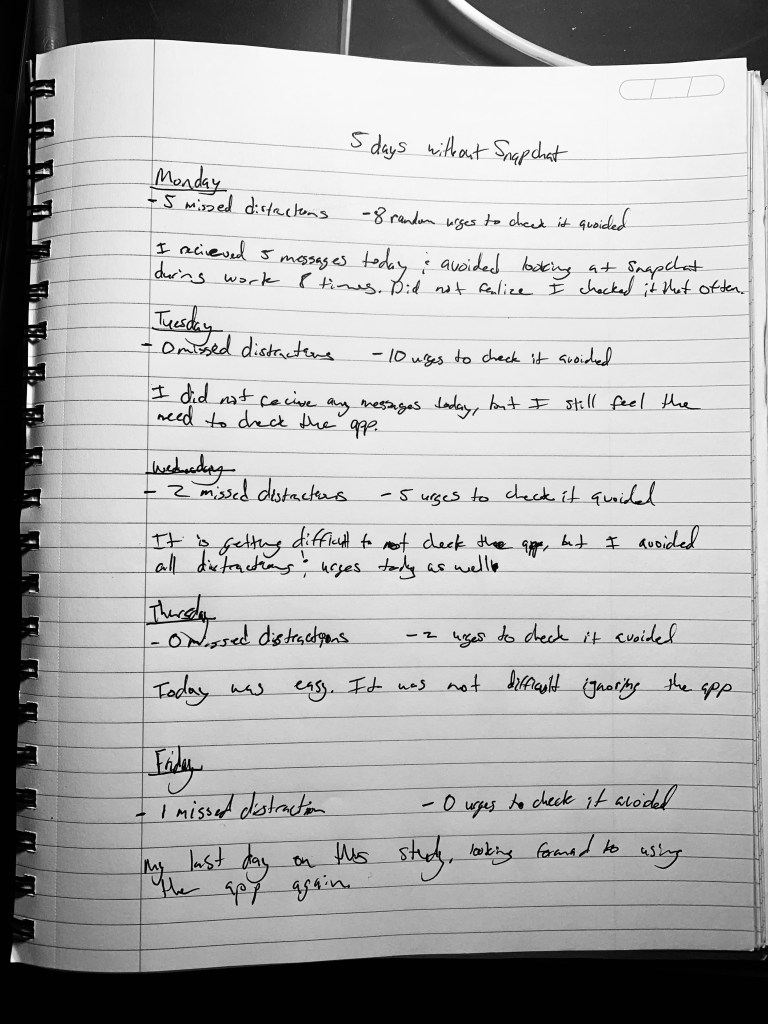 5 days without Snapchat
Monday
- 5 missed distractions - 8 random urges to check it avoided
I recieved 5 messages today & avoided looking at Snapchat
during work 8 times. Did not realize I checked it that often.
Tuesday
- 0 missed distractions - 10 urges to check it avoided
I did not recive any messages today, but I still feel the
need to check the app.
Wednesday
- 2 missed distractions - 5 urges to check it avoided
It is getting difficult to not check the app, but I avoided
all distractions & urges today as well.
Thursday
- 0 missed distractions - 2 urges to check it avoided
Today was easy. It was not difficult ignoring the app
Friday
- 1 missed distraction - 0 urges to check it avoided
My last day on this study, looking forward to using
the app again.